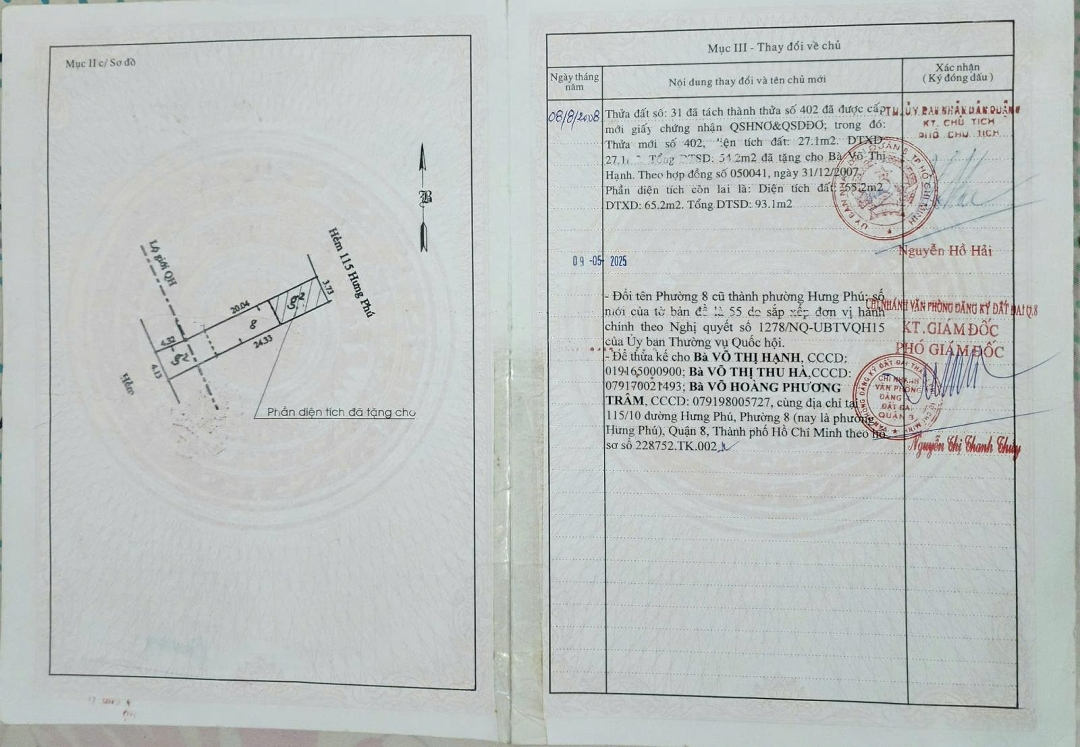 Mục II c/ Sơ đồ
B
Hẻm 115 Hưng Phú
Lộ giới QH
20.04
3.73
8
24.33
4.32
4.13
Hẻm
Phần diện tích đã tặng cho
Mục III - Thay đổi về chủ
Ngày tháng năm
Nội dung thay đổi và tên chủ mới
Xác nhận
(Ký đóng dấu)
08/8/2008
Thửa đất số: 31 đã tách thành thửa số 402 đã được cấp
mới giấy chứng nhận QSHNƠ&QSDĐƠ; trong đó:
Thửa mới số 402, diện tích đất: 27.1m2. DTXD:
Tổng DTSD: 54.2m2 đã tặng cho Bà Võ Thị
Hạnh. Theo hợp đồng số 050041, ngày 31/12/2007.
Phần diện tích còn lại là: Diện tích đất: 65.2m2
DTXD: 65.2m2. Tổng DTSD: 93.1m2
TM. ỦY BAN NHÂN DÂN QUẬN
KT. CHỦ TỊCH
PHÓ CHỦ TỊCH
Nguyễn Hồ Hải
09-05-2025
- Đổi tên Phường 8 cũ thành phường Hưng Phú; số
mới của tờ bản đồ là 55 do sắp xếp đơn vị hành
chính theo Nghị quyết số 1278/NQ-UBTVQH15
của Ủy ban Thường vụ Quốc hội.
- Để thừa kế cho Bà VÕ THỊ HẠNH, CCCD:
Bà VÕ THỊ THU HÀ, CCCD:
Bà VÕ HOÀNG PHƯƠNG
TRÂM, CCCD: 079198005727, cùng địa chỉ tại
115/10 đường Hưng Phú, Phường 8 (nay là phường
Hưng Phú), Quận 8, Thành phố Hồ Chí Minh theo hồ
sơ số 228752.TK.002
CHI NHÁNH VĂN PHÒNG ĐĂNG KÝ ĐẤT ĐAI Q.8
KT. GIÁM ĐỐC
PHÓ GIÁM ĐỐC
CHI NHÁNH
VĂN PHÒNG
ĐĂNG KÝ
ĐẤT ĐAI
QUẬN 8
Nguyễn Thị Thanh Thủy